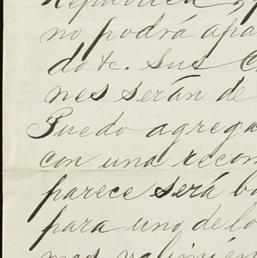 República
no podrá apa
do &c. Sus C
nes serán de
Puedo agrega
con una recom
parece será bo
para uno de lo
mas valimien